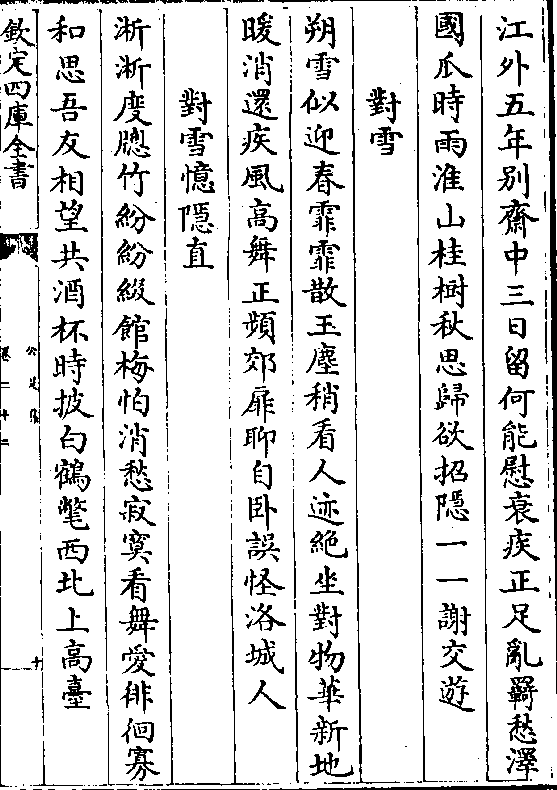 江外五年别齋中三日留何能慰衰疾正足亂羇愁澤
國瓜時雨淮山桂樹秋思歸欲招隱一一謝交遊
對雪
朔雪似迎春霏霏散玉塵稍看人迹絶坐對物華新地
暖消還疾風髙舞正頻郊扉聊自卧誤怪洛城人
對雪憶隱直
淅淅度牕竹紛紛綴館梅怕消愁寂寞看舞愛徘徊寡
和思吾友相望共酒杯時披白鶴氅西北上髙臺
欽定四庫全書
公是集
卷二十二
十